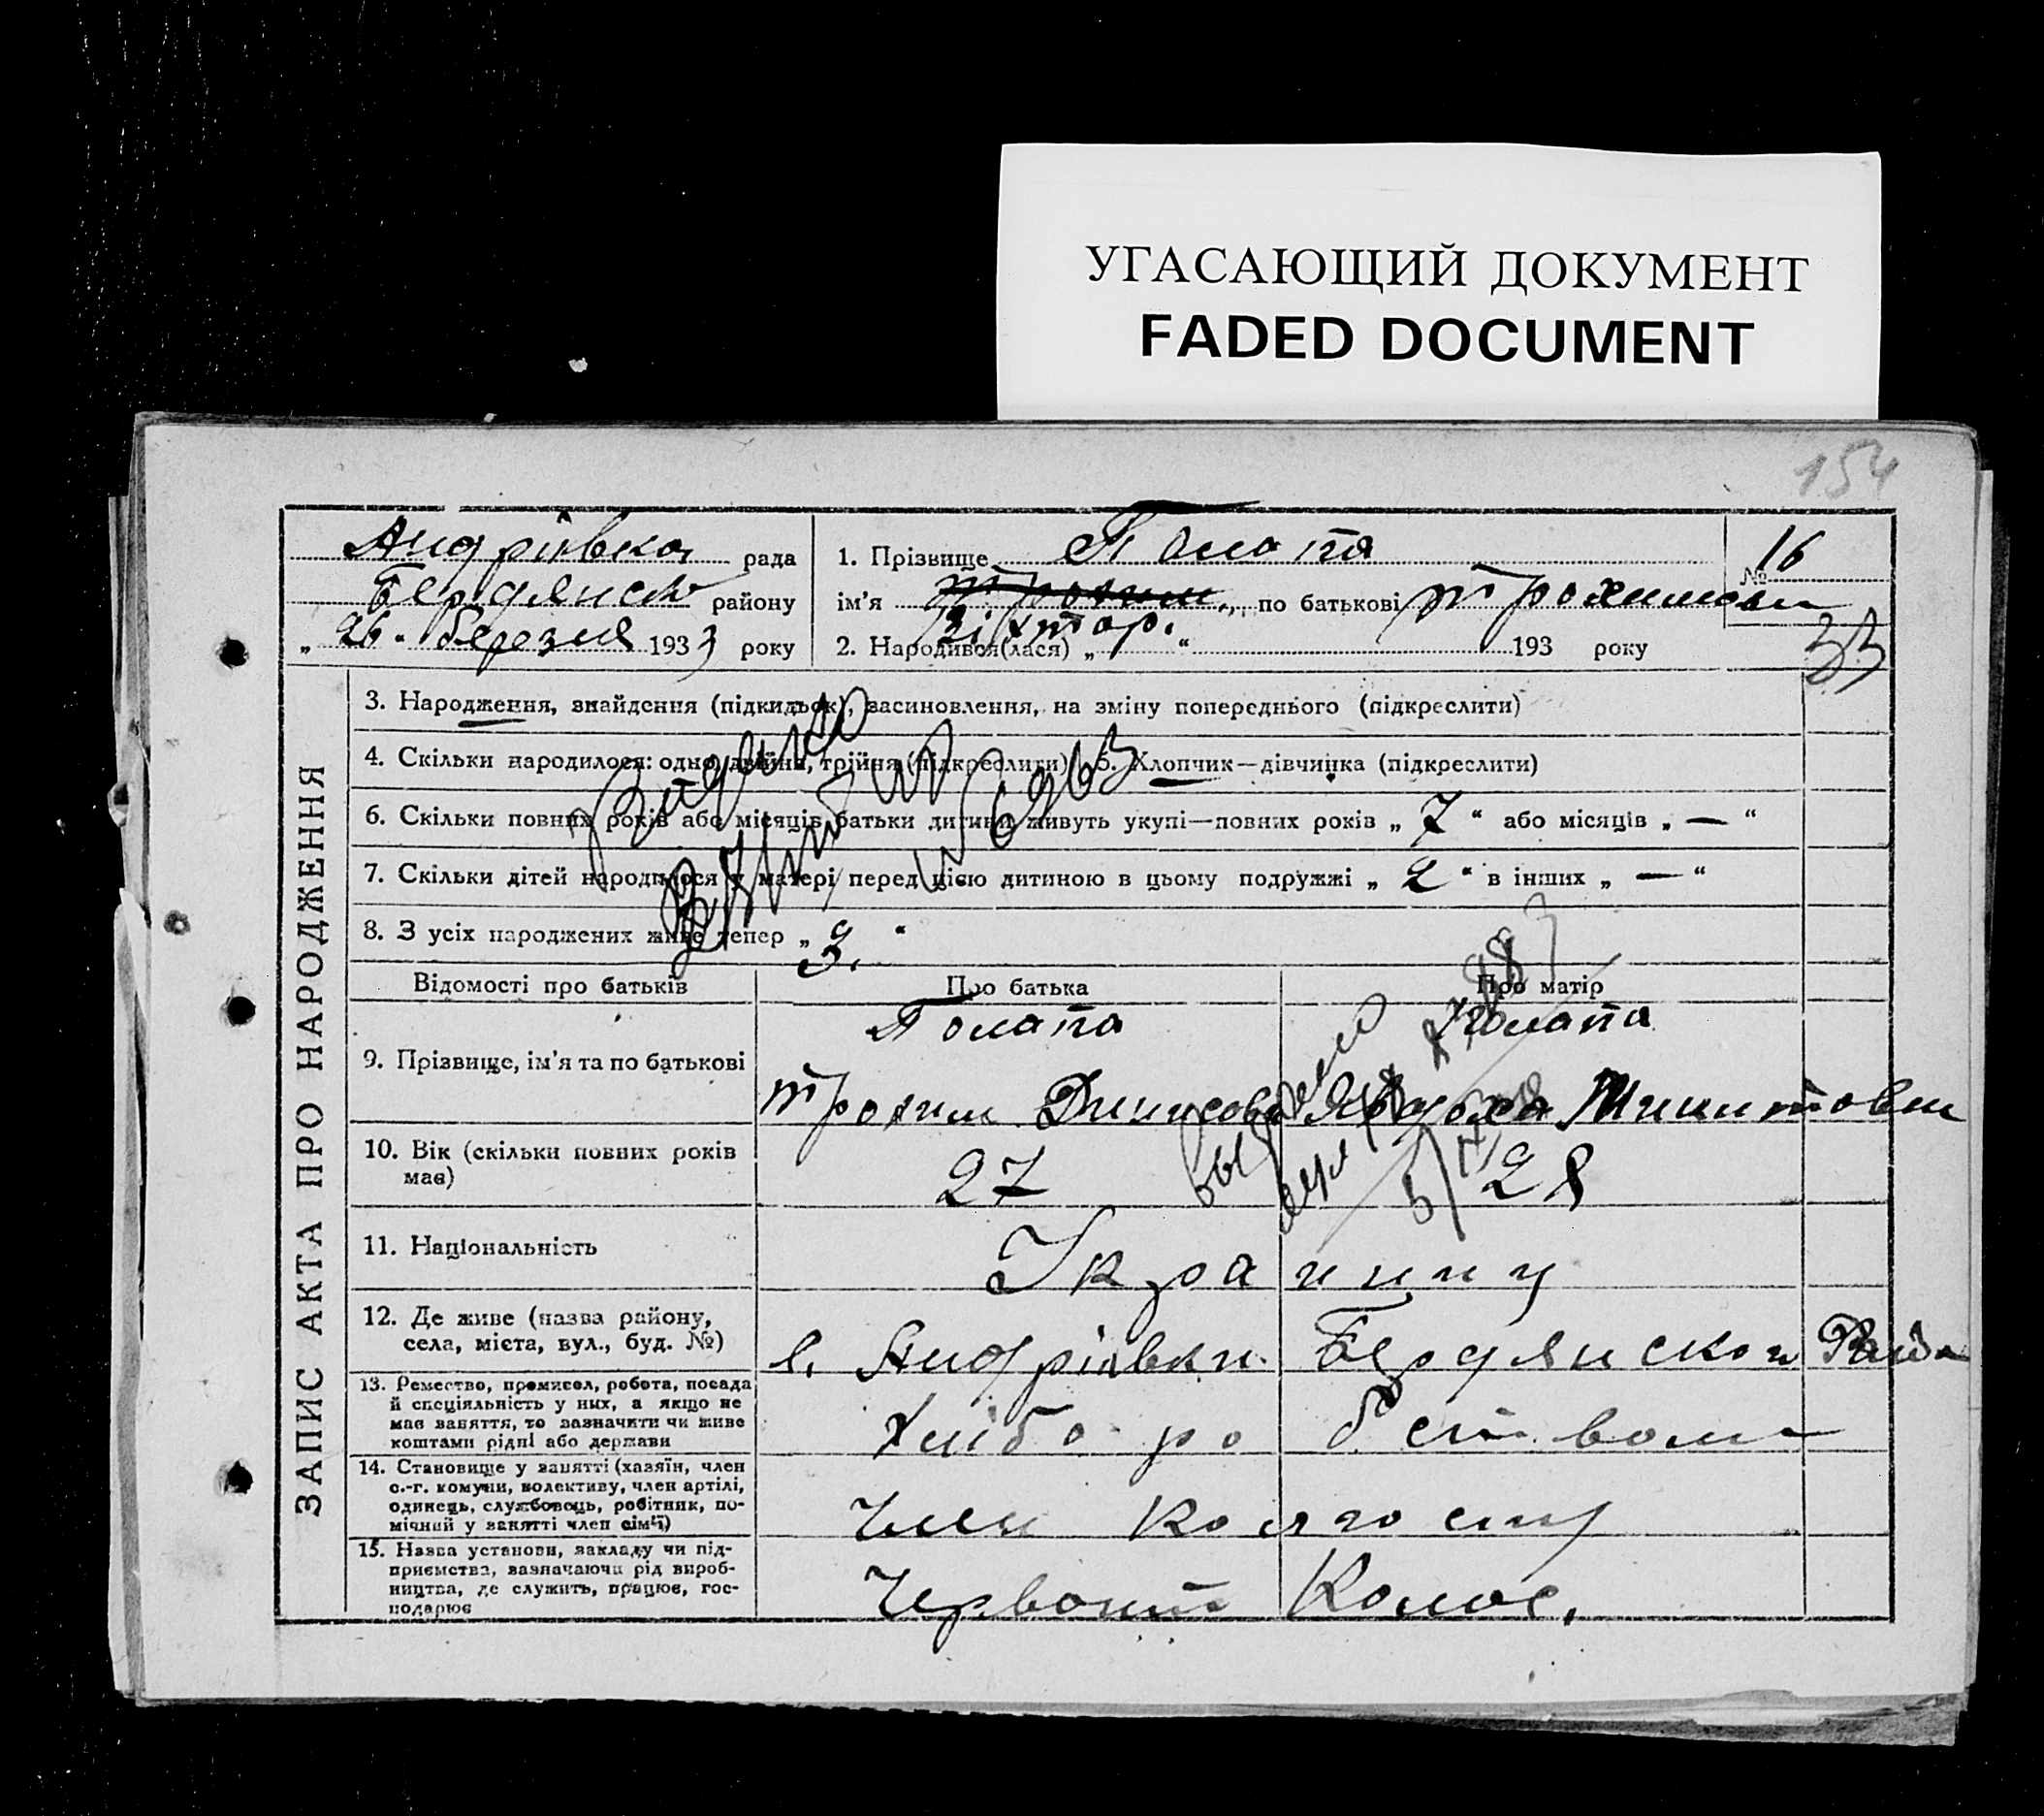 УГАСАЮЩИЙ ДОКУМЕНТ
FADED DOCUMENT
154
Андрівка рада
Бердянськ району
„ 26. березня 1933 року
1. Прізвище Голапа
ім'я Трохим Віхтор. по батькові Трохимови
2. Народився(лася) „ “ 193 року
№ 16
33
ЗАПИС АКТА ПРО НАРОДЖЕННЯ
3. Народження, знайдення (підкидьок), засиновлення, на зміну попереднього (підкреслити)
4. Скільки народилося: одно, двійня, трійня (підкреслити) 5. Хлопчик—дівчинка (підкреслити)
6. Скільки повних років або місяців батьки дитини живуть укупі—повних років „ 7 “ або місяців „ — “
7. Скільки дітей народилося у матері перед цією дитиною в цьому подружжі „ 2 “ в інших „ — “
8. З усіх народжених живе тепер „ 3. “
Відомості про батьків Про батька Про матір
9. Прізвище, ім'я та по батькові
Трохим
10. Вік (скільки повних років має) 27 28
11. Національність Українци
12. Де живе (назва району, села, міста, вул., буд. №)
с. Андрівки Бердянского Району
13. Ремество, промисел, робота, посада
й спеціяльність у них, а якщо не
має заняття, то зазначити чи живе
коштами рідні або держави
Хлібо ро бством
14. Становище у занятті (хазяїн, член
с.-г. комуни, колективу, член артілі,
одинець, службовець, робітник, по-
мічний у занятті член сім'ї)
Член Колгоспу
15. Назва установи, закладу чи під-
приємства, зазначаючи рід вироб-
ництва, де служить, працює, гос-
подарює
Червоний Колос,